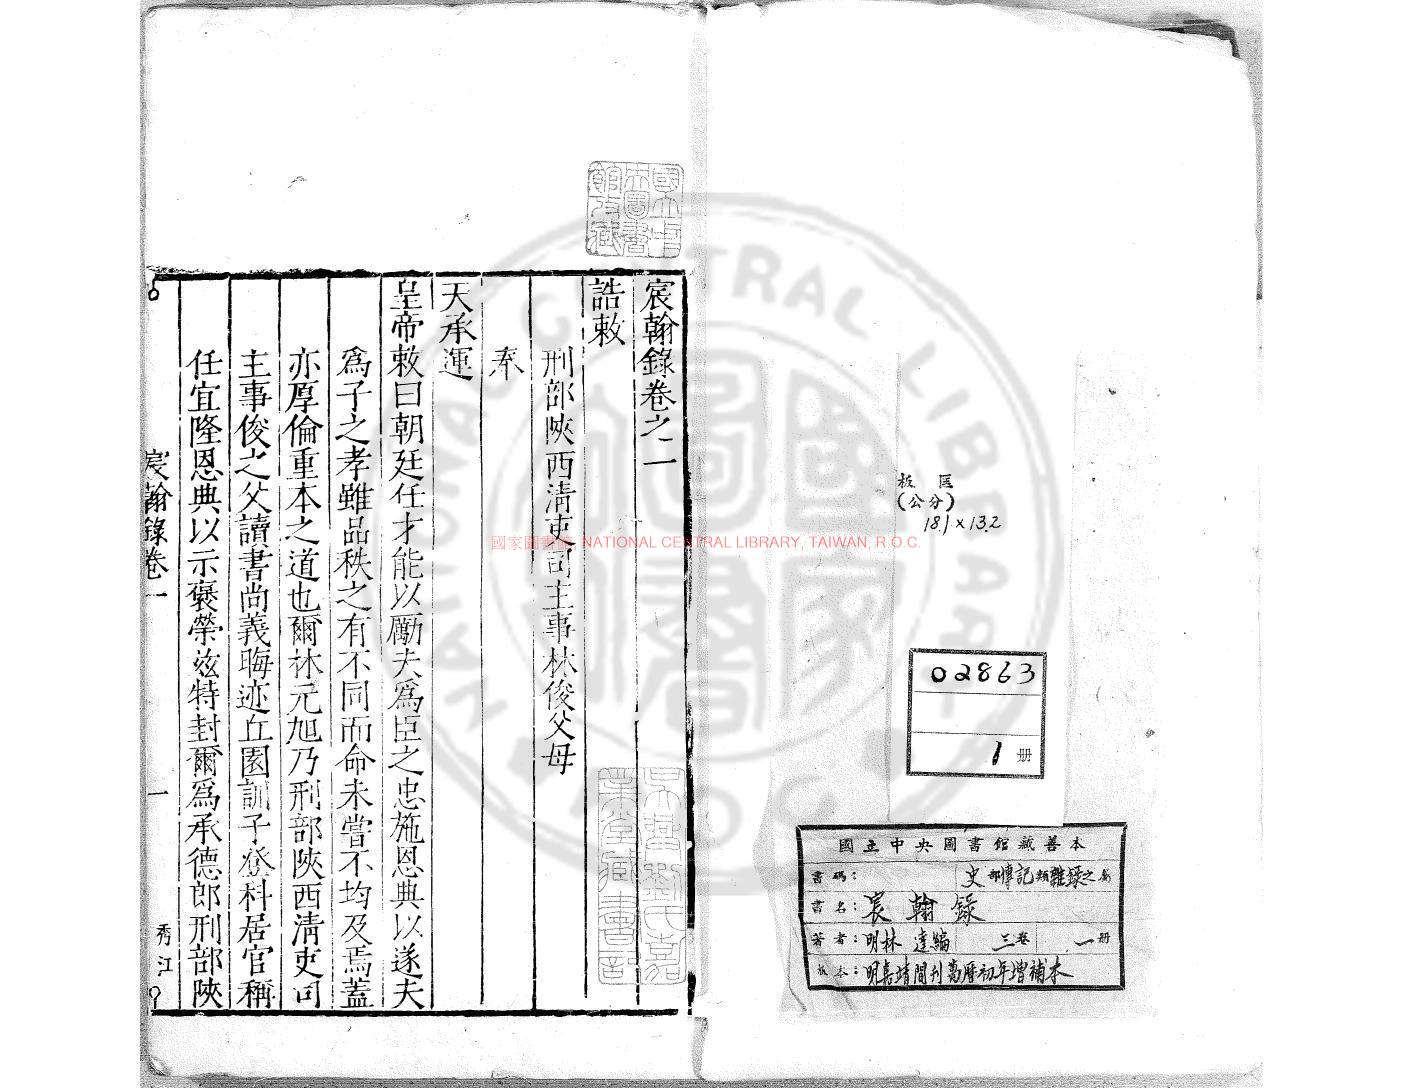 宸翰錄卷之一
誥敕
刑部陝西清吏司主事林俊父母
奉
天承運
皇帝敕曰朝廷任才能以勵夫爲臣之忠施恩典以遂夫
爲子之孝雖品秩之有不同而命未嘗不均及焉蓋
亦厚倫重本之道也爾林元旭乃刑部陝西清吏司
主事俊之父讀書尚義晦迹丘園訓子登科居官稱
任宜隆恩典以示褒榮茲特封爾爲承德郎刑部陝
宸翰錄卷一
一
秀江
板匡
(公分)
18.1×13.2
02863
1册
國立中央圖書館藏善本
書碼：史部傳記類雜錄之屬
書名：宸翰錄
著者：明林達編 三卷 一册
板本：明嘉靖間刊萬曆初年增補本
國立中央圖書館收藏
吳興劉氏嘉業堂藏書印
國家圖書館 NATIONAL CENTRAL LIBRARY, TAIWAN, R.O.C.
國家圖書館
NATIONAL CENTRAL LIBRARY
R.O.C.